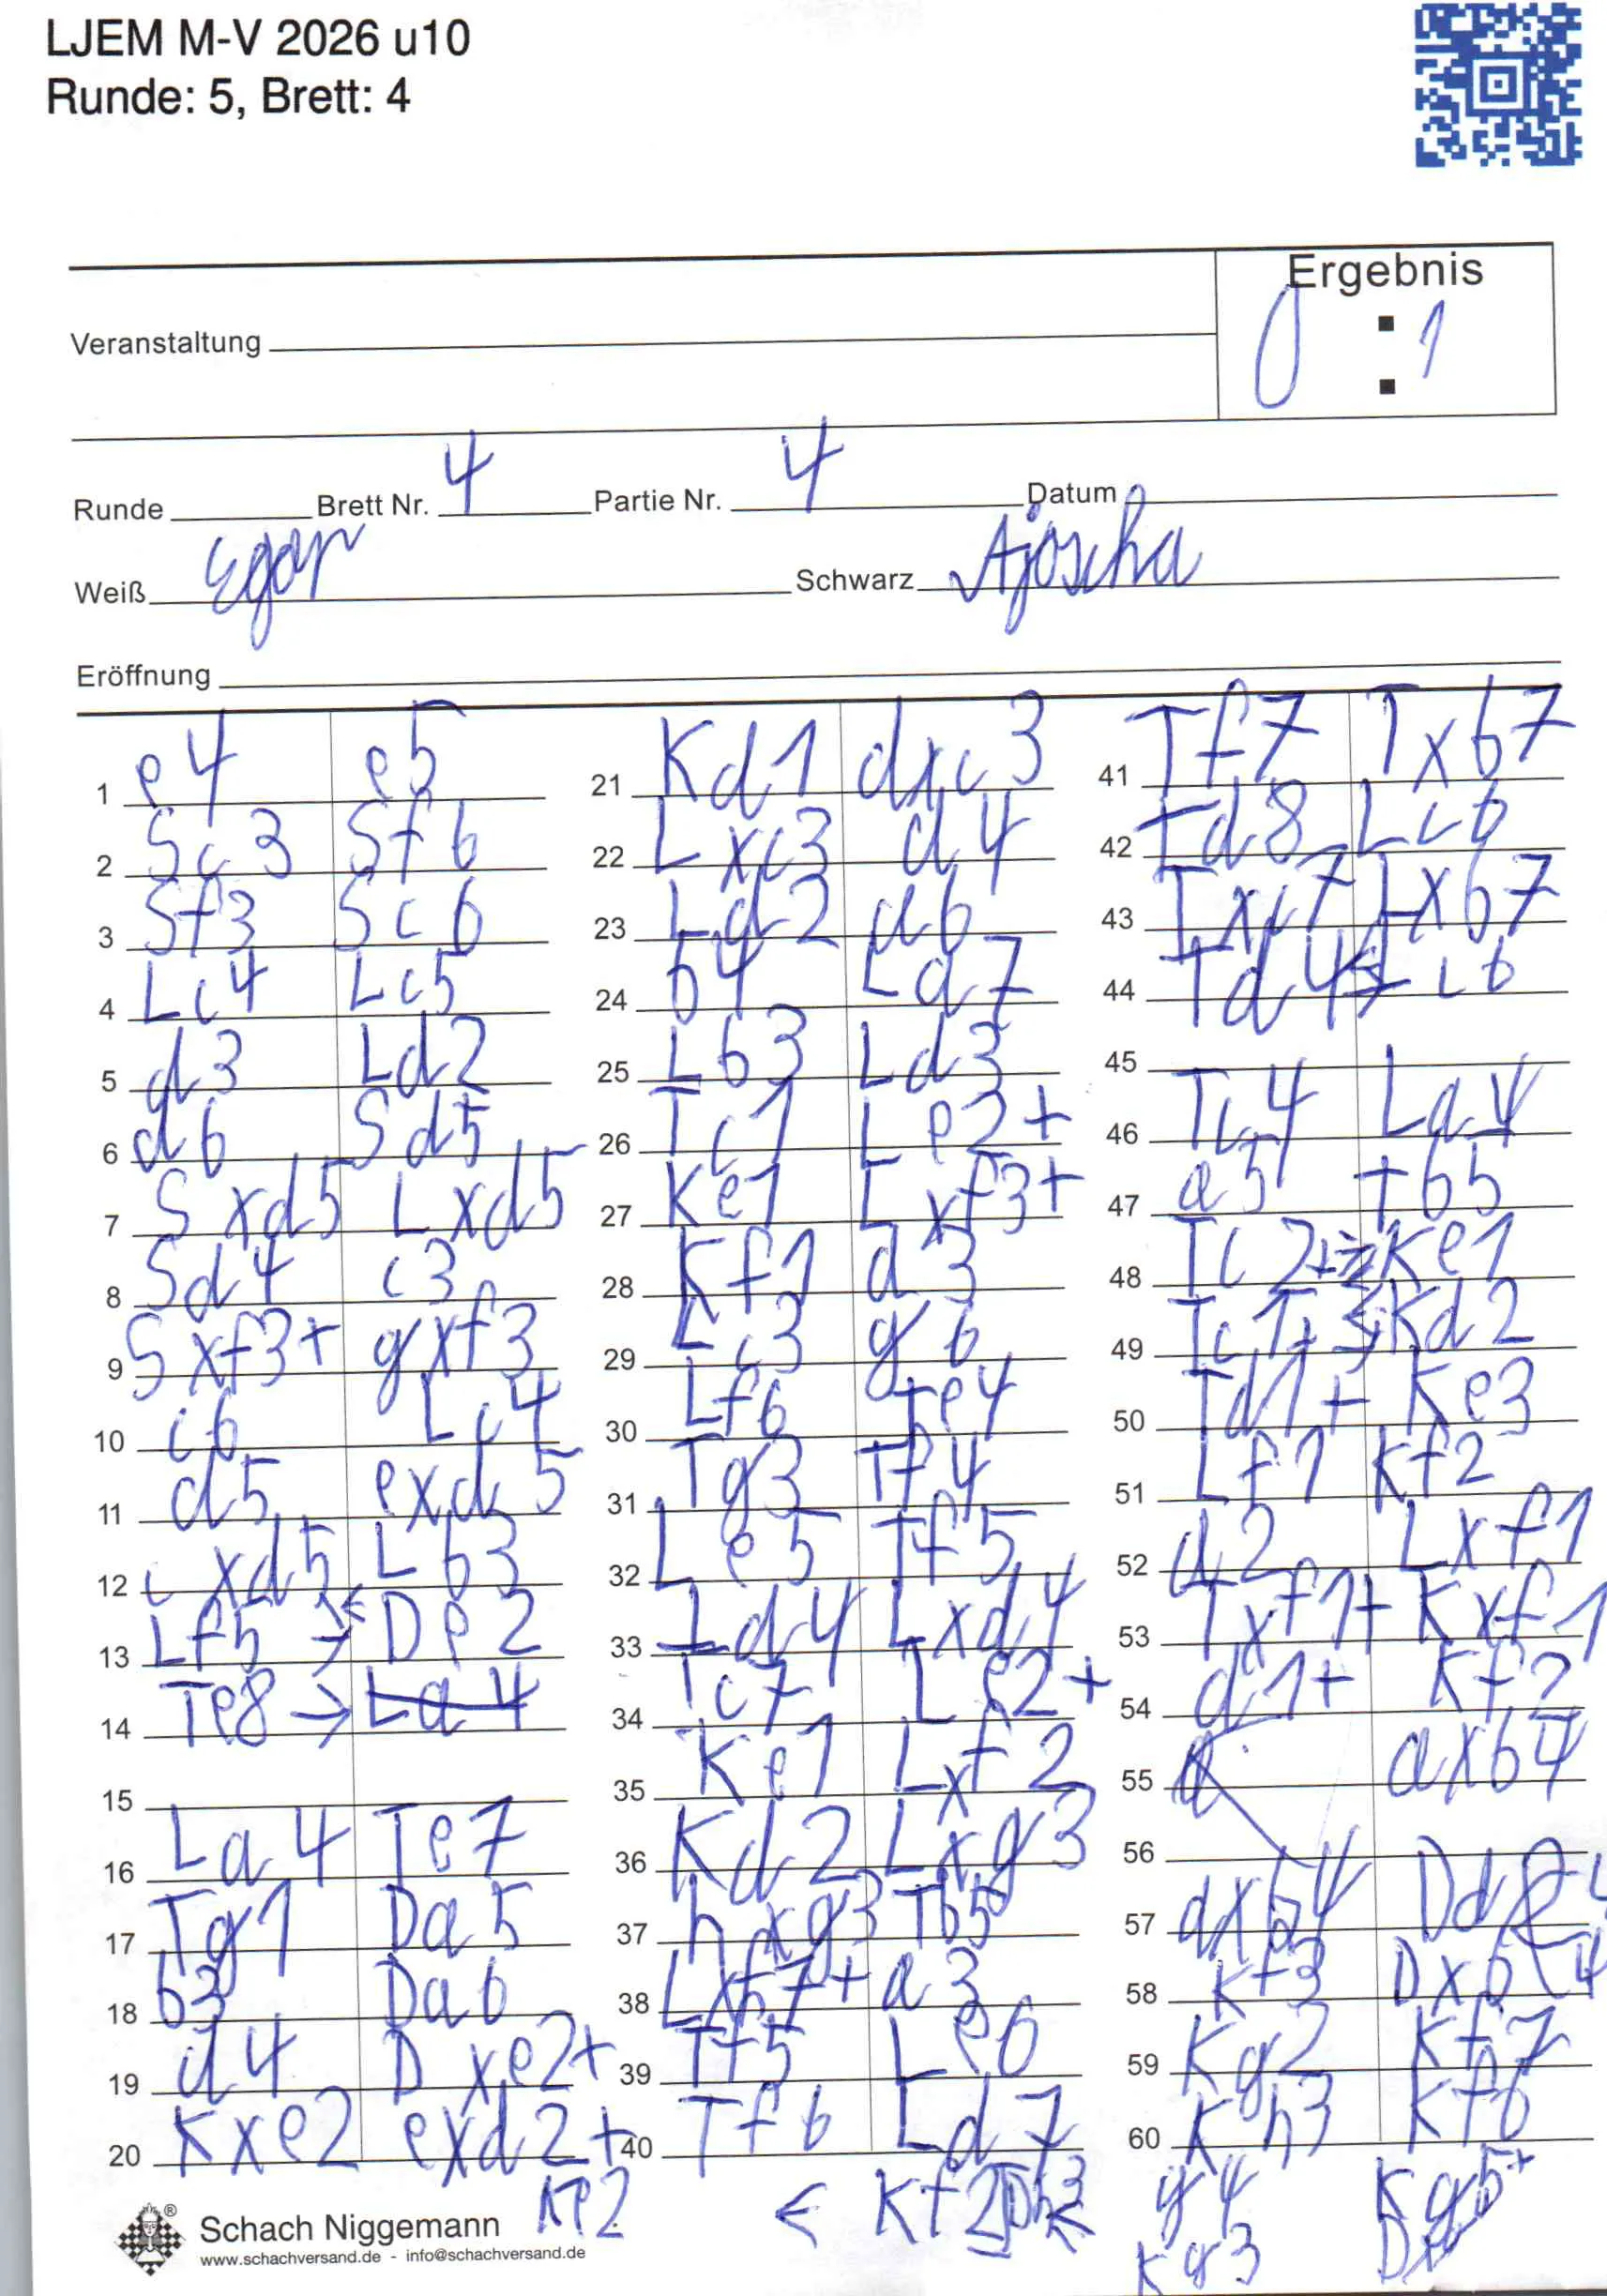 LJEM M-V 2026 u10
Runde: 5, Brett: 4
Ergebnis
0 : 1
Veranstaltung
Runde Brett Nr. 4 Partie Nr. 4 Datum
Weiß Egor Schwarz Ajoscha
Eröffnung
1 e4 e5
2 Sc3 Sf6
3 Sf3 Sc6
4 Lc4 Lc5
5 d3 Ld2
6 d6 Sd5
7 Sxd5 Lxd5
8 Sd4 c3
9 Sxf3+ gxf3
10 c6 Lc4
11 d5 exd5
12 cxd5 Lb3
13 Lf5 De2
14 Te8 → La4
15
16 La4 Te7
17 Tg1 Da5
18 b3 Da6
19 d4 Dxe2+
20 Kxe2 exd2+
21 Kd1 dxc3
22 Lxc3 d4
23 Ld2 a6
24 b4 Ld7
25 Lb3 Ld3
26 Tc1 Le2+
27 Ke1 Lxf3+
28 Kf1 d3
29 Lc3 g6
30 Lf6 Te4
31 Tg3 Tf4
32 Le5 Tf5
33 Ld4 Lxd4
34 Tc7 Le2+
35 Ke1 Lxf2
36 Kd2 Lxg3
37 hxg3 Tb5
38 Lxf7+ a3
39 Tf5 Le6
40 Tf6 Ld7
41 Tf7 Txb7
42 Td8 Lc6
43 Txc7 Lxb7
44 Td4 Lc6
45
46 Tc4 La4
47 a3 Tb5
48 Tc2+ Ke1
49 Tc1+ Kd2
50 Td1+ Ke3
51 Lf1 Kf2
52 d2 Lxf1
53 Txf1+ Kxf1
54 d1+ Kf2
55 axb4
56
57 axb4
58 Kf3
59 Kg2 Kf7
60 Kh3 Kf6
Ke2
← Kf2
g4 Kg5+
Kg3
Schach Niggemann
www.schachversand.de - info@schachversand.de